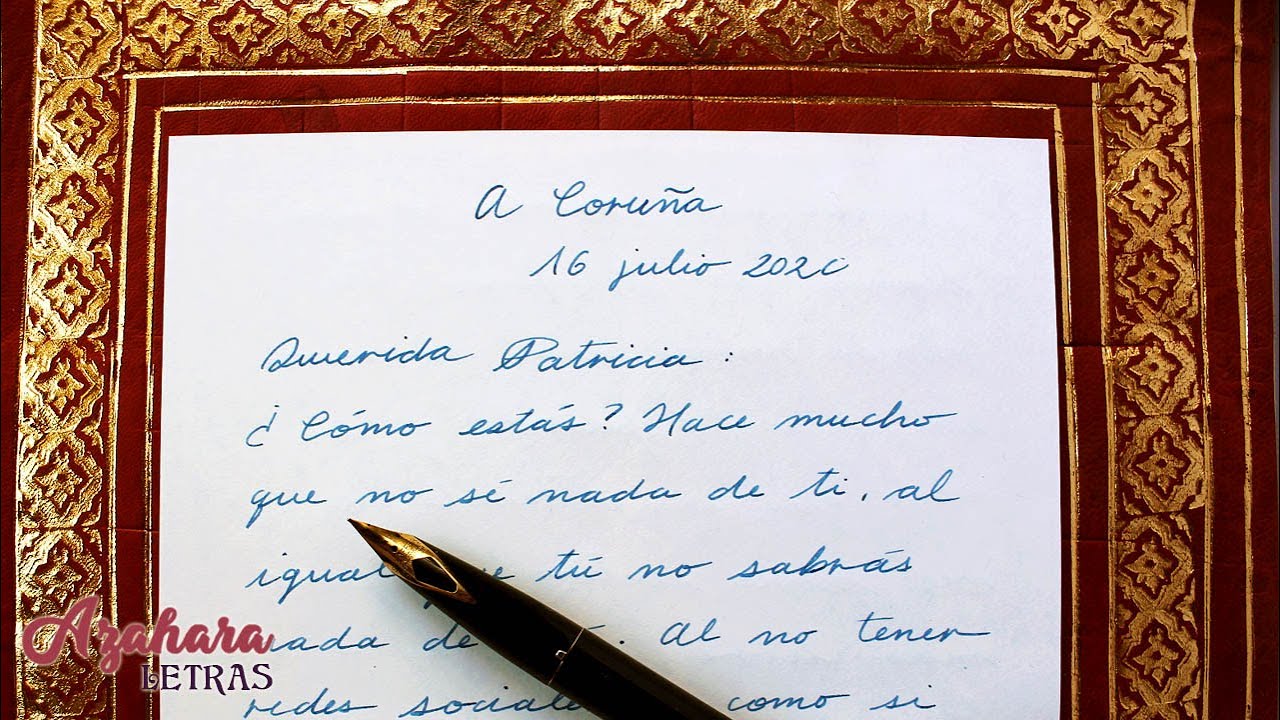 A Coruña
16 julio 2020
Querida Patricia:
¿Cómo estás? Hace mucho
que no sé nada de ti, al
igual tú no sabrás
nada de Al no tener
redes como si
Azahara
LETRAS